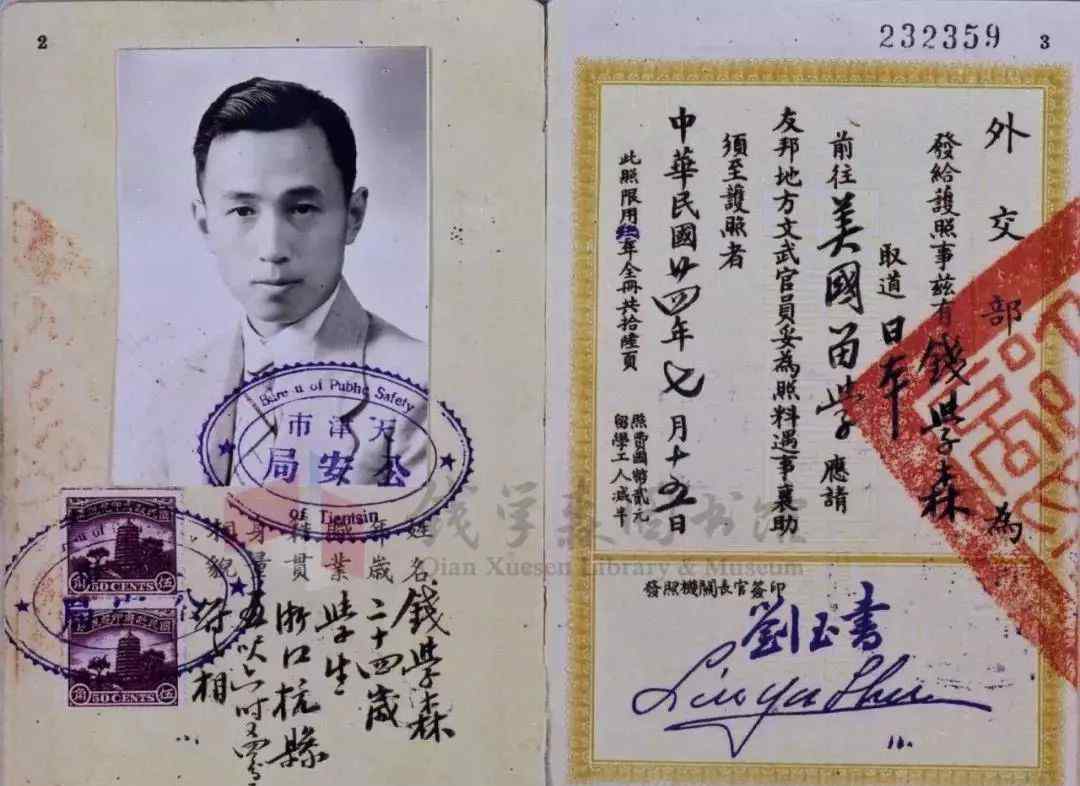 2
Bureau of Public Safety
天津市
公安局
of Tientsin
50 CENTS
50 CENTS
姓名 錢學森
年歲 二十四歲
職業 學生
籍貫 浙江杭縣
身量 五呎六吋又四分
相貌 符相
錢学森图书馆
Qian Xuesen Library & Museum
232359
3
外交部為
發給護照事茲有錢學森
取道日本
前往美國留學應請
友邦地方文武官員妥為照料遇事襄助
須至護照者
中華民國廿四年七月十五日
此照限用年全冊共拾陸頁
照費國幣貳元
留學工人減半
發照機關長官簽印
劉玉書
Liu Yu Shu